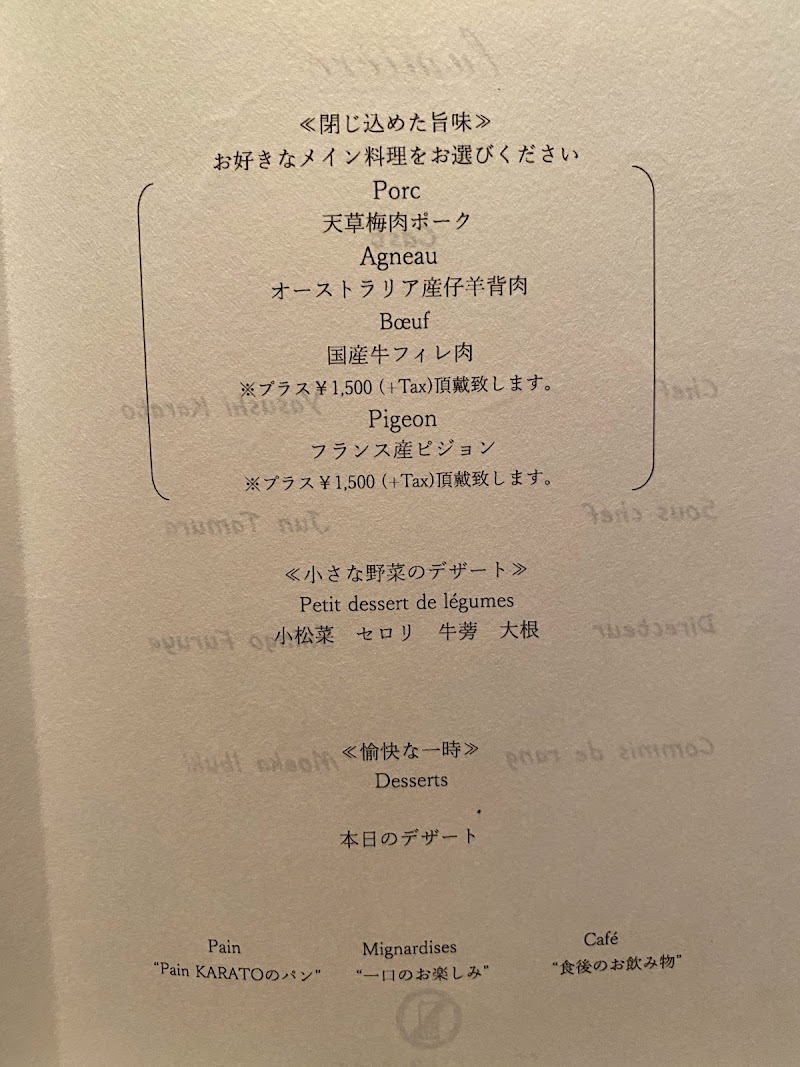 ≪閉じ込めた旨味≫
お好きなメイン料理をお選びください
Porc
天草梅肉ポーク
Agneau
オーストラリア産仔羊背肉
Bœuf
国産牛フィレ肉
※プラス￥1,500 (+Tax)頂戴致します。
Pigeon
フランス産ピジョン
※プラス￥1,500 (+Tax)頂戴致します。
≪小さな野菜のデザート≫
Petit dessert de légumes
小松菜　セロリ　牛蒡　大根
≪愉快な一時≫
Desserts
本日のデザート
Pain
“Pain KARATOのパン”
Mignardises
“一口のお楽しみ”
Café
“食後のお飲み物”
Chef Yasushi Karato
Sous chef Jun Tamura
Directeur Furuya
Commis de rang Moeka Ibuki